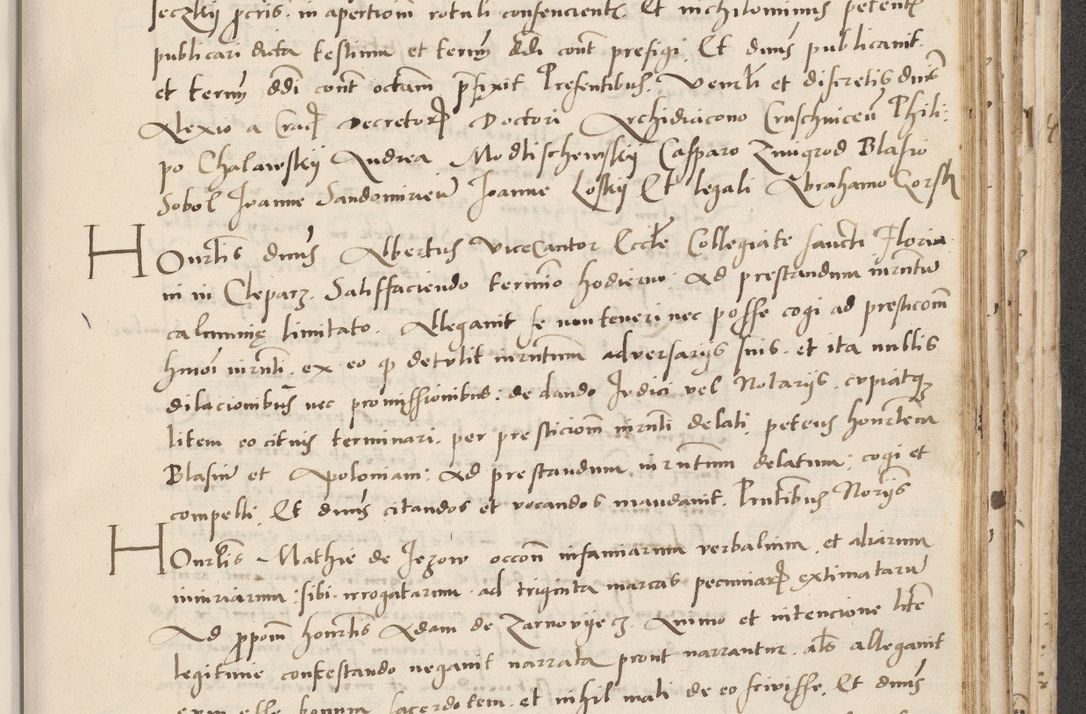 Jeczkij procuris. in apertionem rotuli consencientis. Et nichilominus petentis
publicari dicta testium et terminum ddi cont prefigi. Et dnus publicavit.
et terminum ddi cont octavam prefixit. Presentibus. Venerli et discretis dnis
Alexio a Crac. Decretorum Doctori Archidiacono Cruschvicen Phili-
po Chalawskij Andrea Modlischewskij Casparo Zmigrod Blasio
Sobol Joanne Sandomirien Joanne Loskij Et legali Abrahamo Gorsk
Honrlis dnus Albertus ViceCantor Eccle Collegiate sancti Floria
ni in Cleparz. Satisffaciendo termino hodierno ad prestandum iurntum
calumnię limitato. Allegavit se non teneri nec posse cogi ad presticonem
hmoi iurnti. ex eo q detulit iurntum adversarijs suis. et ita nullis
dilacionibus nec promissionibus: de dando Judici vel Notarijs. cupiatq
litem eo citius terminari. per presticionem iurnti delati. petens honrlem
Blasium et Apoloniam: ad prestandum iurntum delatum; cogi et
compelli. Et dnus citandos et vocandos mandavit. Pntibus Norijs
Honrlis Mathie de Jezow occone infamiarum verbalium. et aliarum
iniuriarum sibi irrogatarum. ad triginta marcas pecuniarum extimatarum
Ad propom honrlis Adam de Zarnovijecz. Animo et intencione litem
legitime contestando negavit narrata prout narrantur. als allegavit
eum esse bonum sacerdotem. et nihil mali de eo scivisse. Et dnus